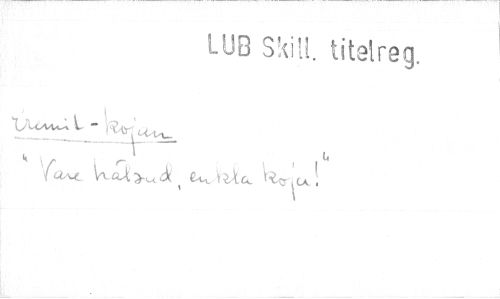 LUB Skill. titelreg.
Eremit-kojan
"Vare hälsad, enkla koja!"